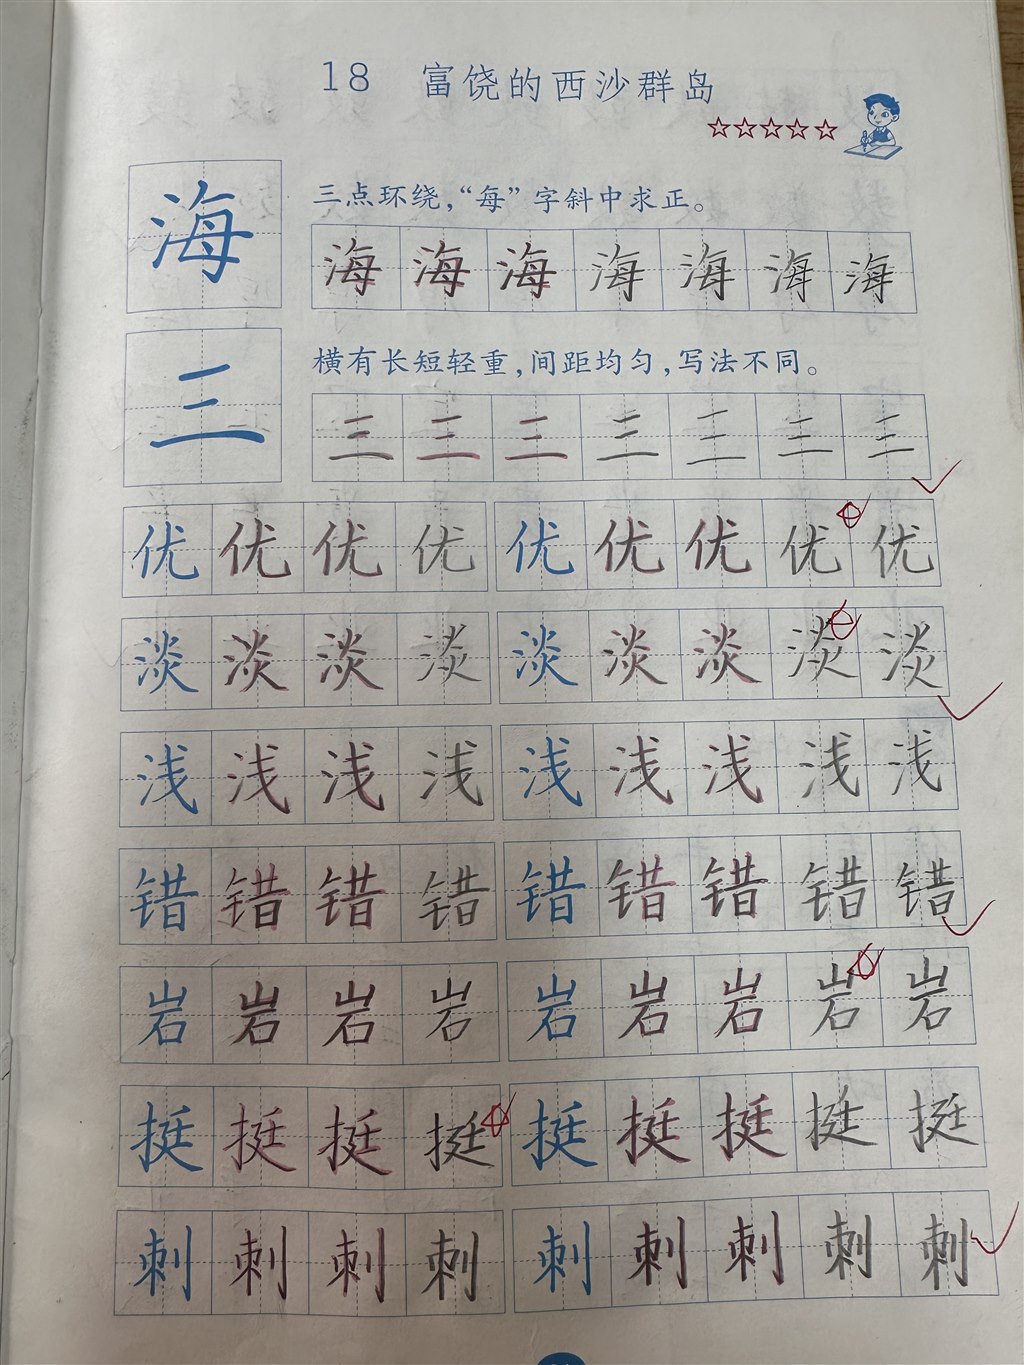 18 富饶的西沙群岛
☆☆☆☆☆
海
三点环绕,“每”字斜中求正。
海海海海海海海
三
横有长短轻重,间距均匀,写法不同。
三三三三三三三
优优优优优优优优优
淡淡淡淡淡淡淡淡淡
浅浅浅浅浅浅浅浅浅
错错错错错错错错错
岩岩岩岩岩岩岩岩岩
挺挺挺挺挺挺挺挺挺
刺刺刺刺刺刺刺刺刺